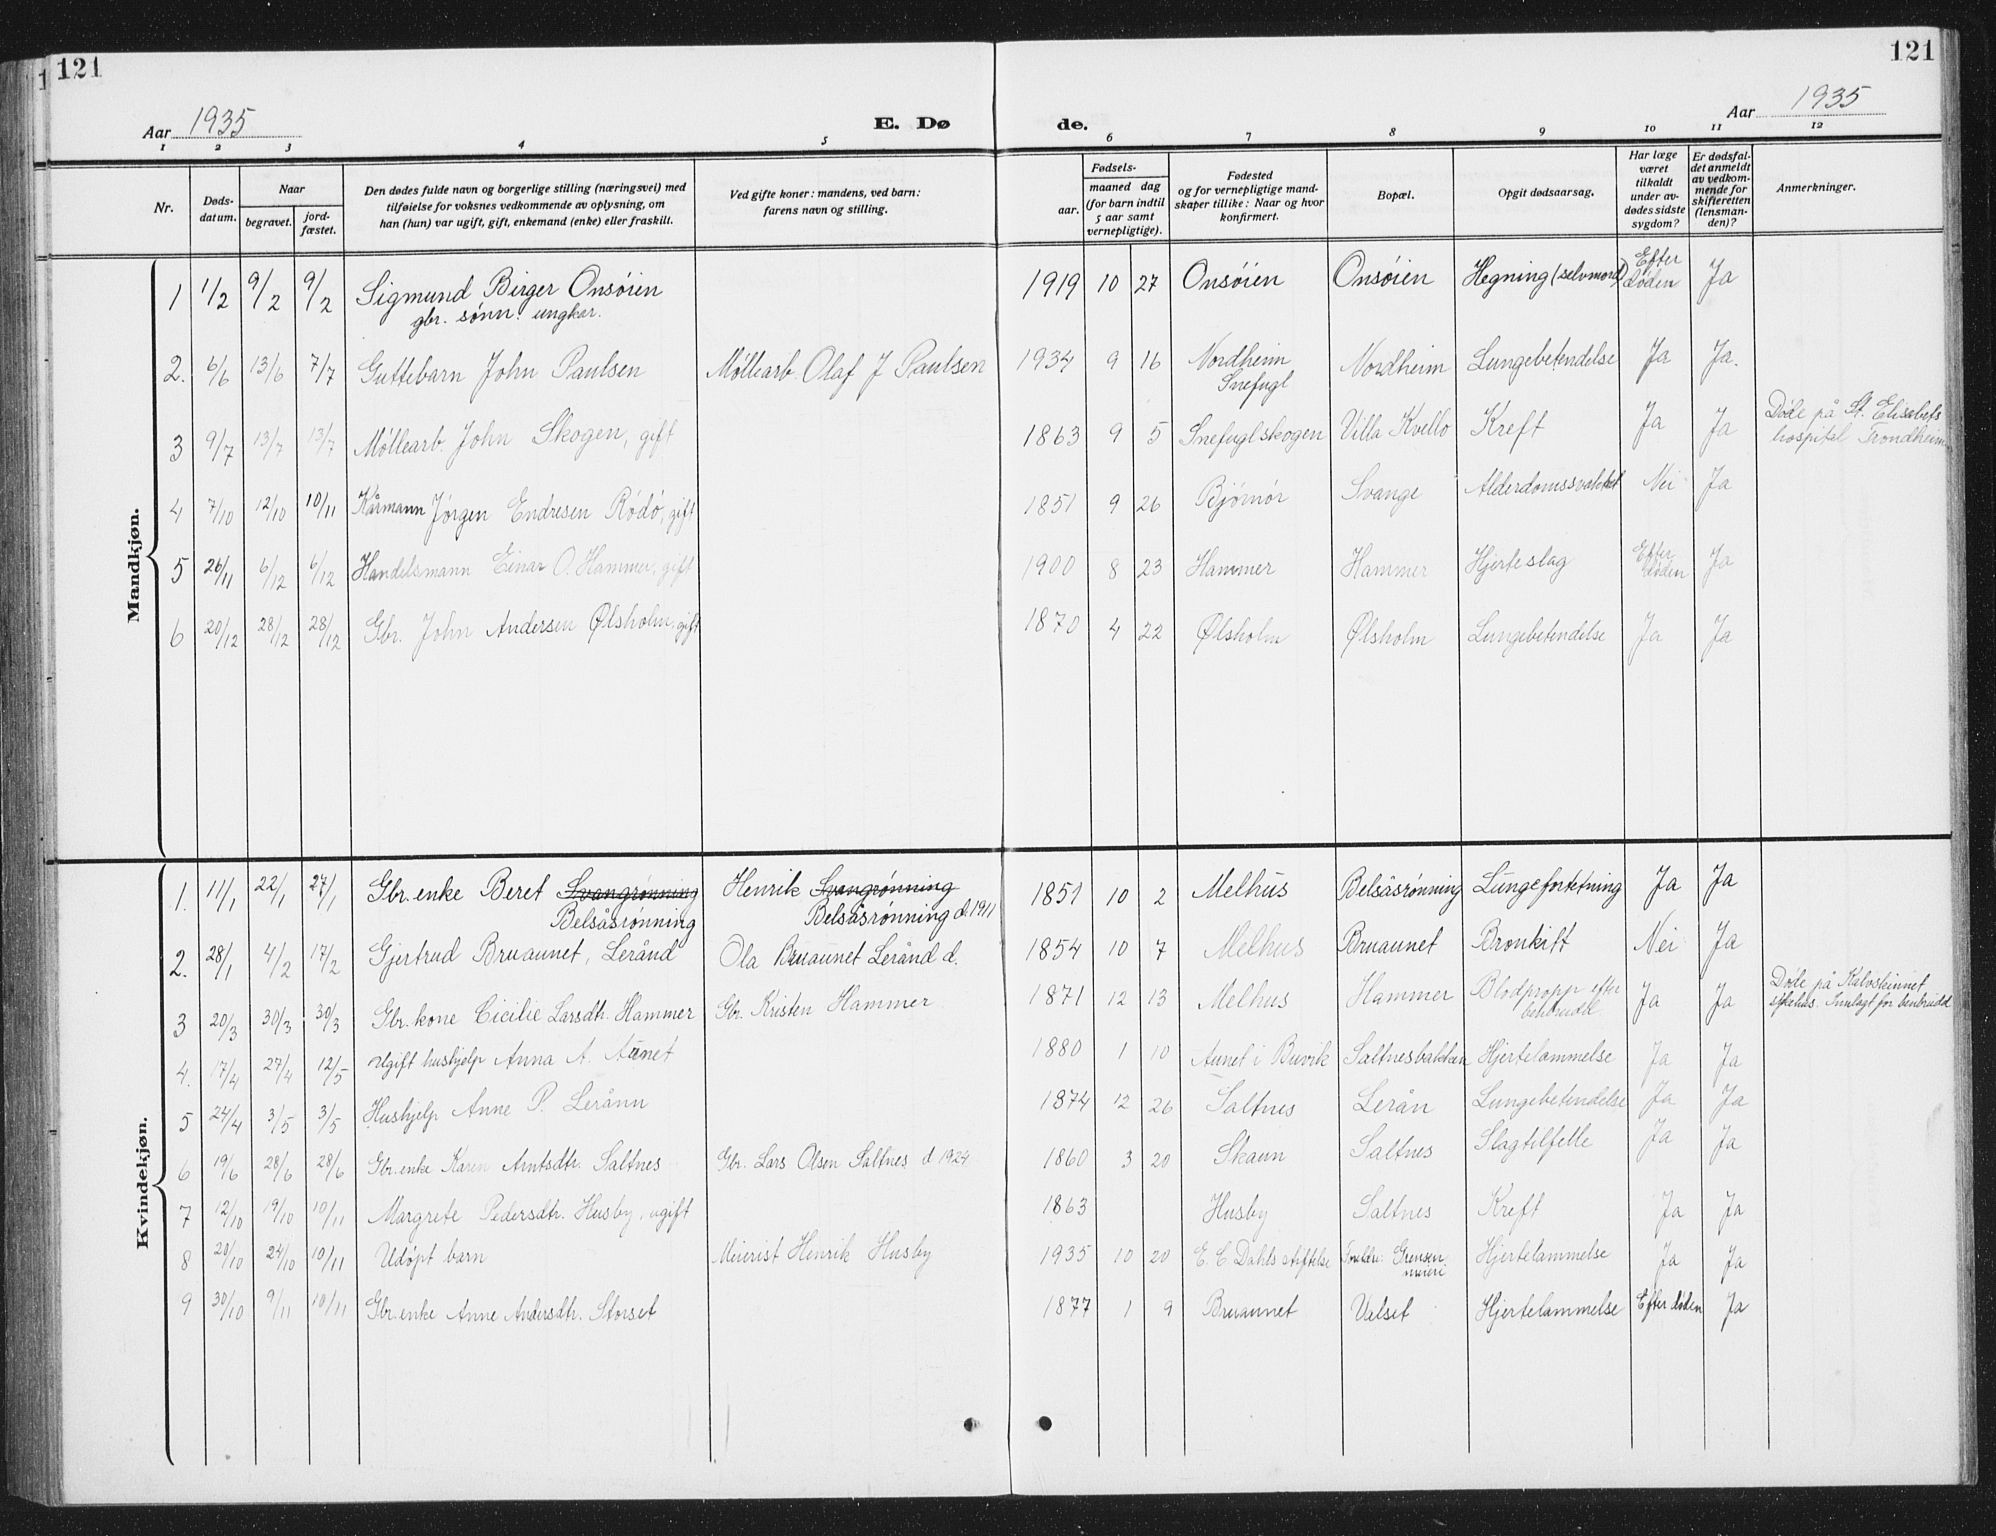 121
121
Aar 1935
E. Dø
de.
Aar 1935
1 2 3 4 5 6 7 8 9 10 11 12
Nr.
Døds-
datum.
Naar
begravet.
jord-
fæstet.
Den dødes fulde navn og borgerlige stilling (næringsvei) med
tilføielse for voksnes vedkommende av oplysning, om
han (hun) var ugift, gift, enkemand (enke) eller fraskilt.
Ved gifte koner: mandens, ved barn:
farens navn og stilling.
Fødsels-
aar.
maaned dag
(for barn indtil
5 aar samt
vernepligtige).
Fødested
og for vernepligtige mand-
skaper tillike: Naar og hvor
konfirmert.
Bopæl.
Opgit dødsaarsag.
Har læge
været
tilkaldt
under av-
dødes sidste
sygdom?
Er dødsfal-
det anmeldt
av vedkom-
mende for
skifteretten
(lensman-
den)?
Anmerkninger.
Mandkjøn.
1 1/2 9/2 9/2 Sigmund Birger Onsøien 1919 10 27 Onsøien Onsøien Hegning (selvmord) Efter døden Ja
gbr. sønn. ungkar.
2. 6/6 13/6 7/7 Guttebarn John Paulsen Møllearb. Olaf J Paulsen 1934 9 16 Nordheim Nordheim Lungebetendelse Ja Ja.
Snefugl
3 9/7 13/7 13/7 Møllearb. John Skogen, gift 1863 9 5 Snefuglskogen Villa Kvello Kreft Ja Ja Døde på St. Elisabets
hospital Trondheim
4 7/10 12/10 10/11 Kårmann Jørgen Endresen Rødø, gift 1851 9 26 Bjørnør Svange Alderdomssvakhet Nei Ja
5 26/11 6/12 6/12 Handelsmann Einar O. Hammer, gift 1900 8 23 Hammer Hammer Hjerteslag Efter døden Ja
6 20/12 28/12 28/12 Gbr. John Andersen Ølsholm, gift 1870 4 22 Ølsholm Ølsholm Lungebetendelse Ja Ja
Kvindekjøn.
1. 11/1 22/1 27/1 Gbr. enke Beret Svangrønning Henrik Svangrønning 1851 10 2 Melhus Belsåsrønning Lungefortetning Ja Ja
Belsåsrønning Belsåsrønning d. 1911
2. 28/1 4/2 17/2 Gjertrud Bruaunet, Lerånd Ola Bruaunet Lerånd d. 1854 10 7 Melhus Bruaunet Bronkitt Nei Ja
3 20/3 30/3 30/3 Gbr. kone Cicilie Larsdtr. Hammer Gbr. Kristen Hammer 1871 12 13 Melhus Hammer Blodpropp efter Ja Ja Døde på
benbrudd sykehus. Innlagt for benbrudd
4. 17/4 27/4 12/5 Ugift hushjelp Anna A. Aunet 1880 1 10 Aunet i Buvik Saltnesbakken Hjertelammelse Ja Ja
5 24/4 3/5 3/5 Hushjelp Anne P. Lerånn 1874 12 26 Saltnes Lerån Lungebetendelse Ja Ja
6 19/6 28/6 28/6 Gbr. enke Karen Arntsdtr. Saltnes Gbr. Lars Olsen Saltnes d 1924 1860 3 20 Skaun Saltnes Slagtilfelle Ja Ja
7 12/10 19/10 10/11 Margrete Pedersdtr. Husby, ugift 1863 Husby Saltnes Kreft Ja Ja
8 20/10 24/10 10/11 Udøpt barn Meierist Henrik Husby 1935 10 20 E. C. Dahls stiftelse Grensen Hjertelammelse Ja Ja
meieri
9 30/10 9/11 10/11 Gbr. enke Anne Andersdtr. Storset 1877 1 9 Bruaunet Velset Hjertelammelse Efter døden Ja